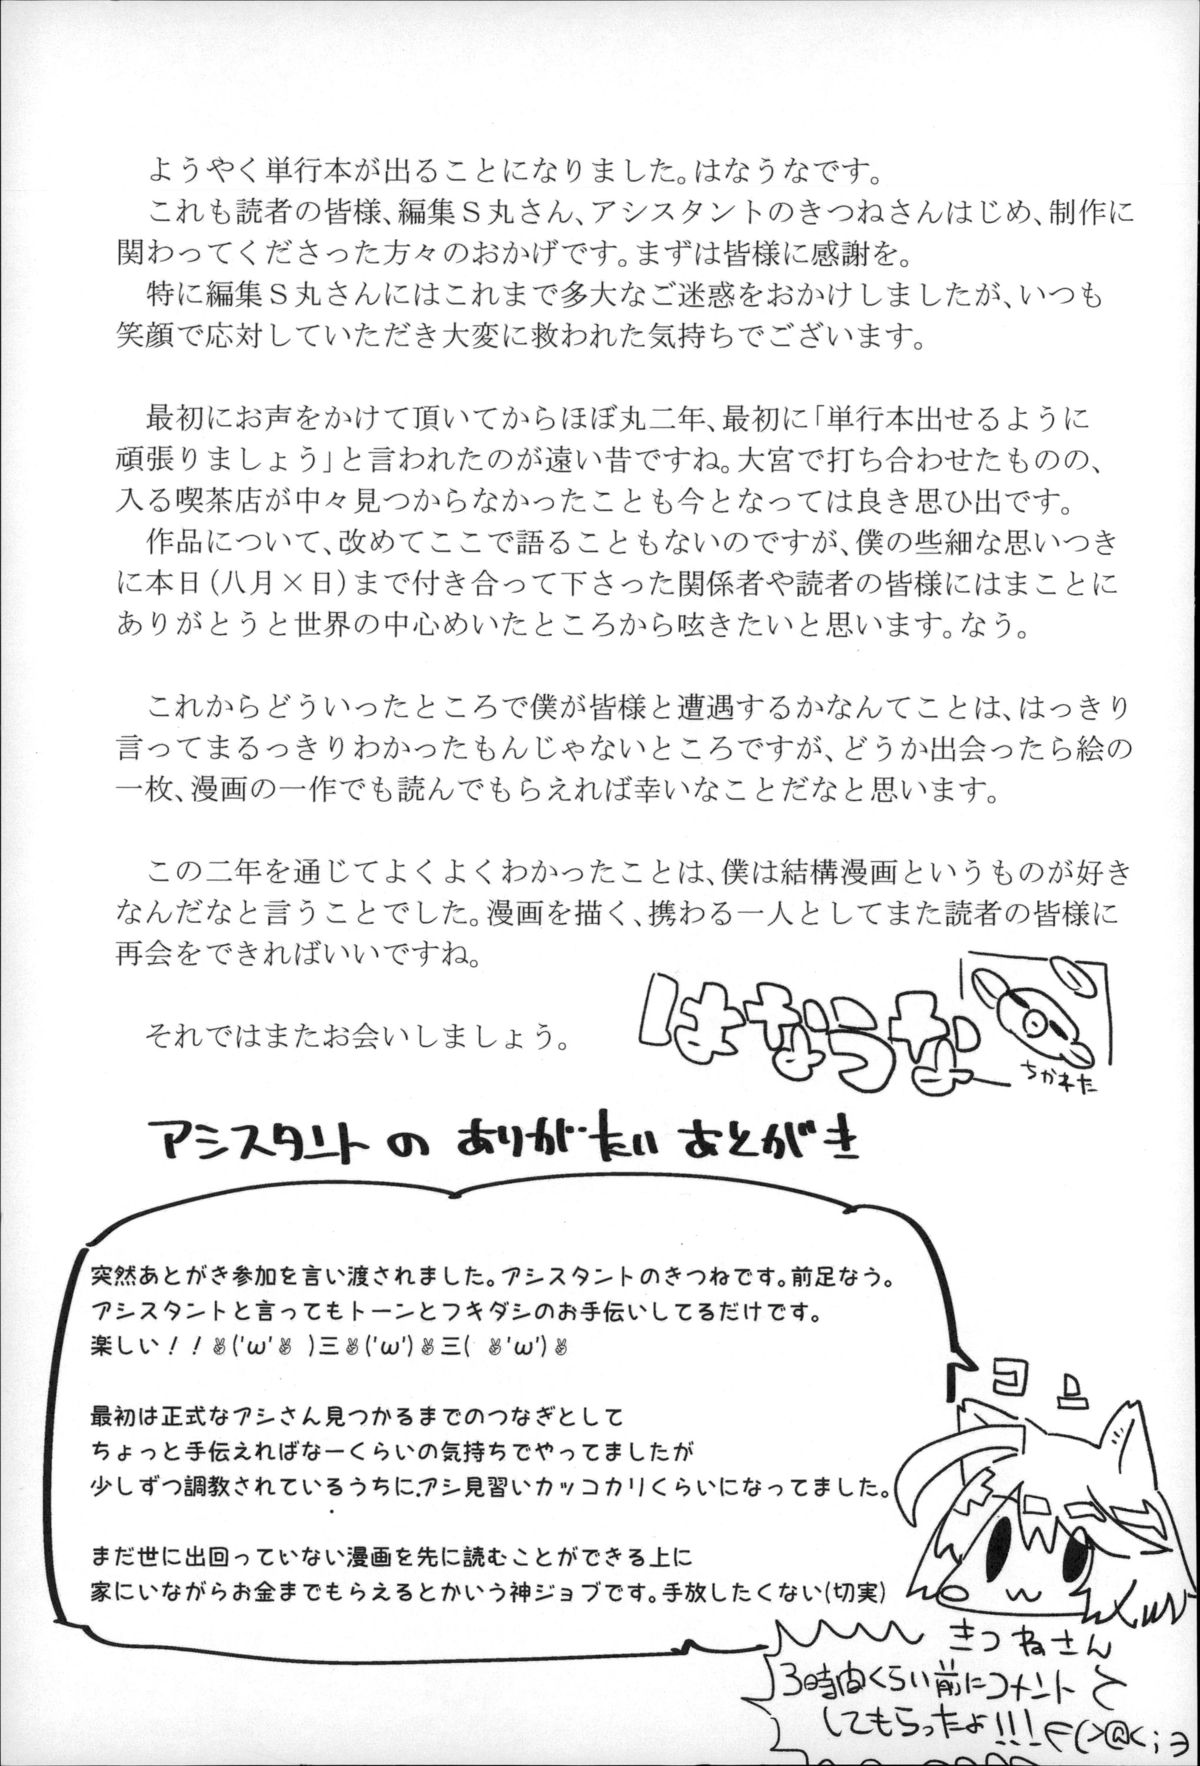 ようやく単行本が出ることになりました。はなうなです。
これも読者の皆様、編集Ｓ丸さん、アシスタントのきつねさんはじめ、制作に
関わってくださった方々のおかげです。まずは皆様に感謝を。
特に編集Ｓ丸さんにはこれまで多大なご迷惑をおかけしましたが、いつも
笑顔で応対していただき大変に救われた気持ちでございます。
最初にお声をかけて頂いてからほぼ丸二年、最初に「単行本出せるように
頑張りましょう」と言われたのが遠い昔ですね。大宮で打ち合わせたものの、
入る喫茶店が中々見つからなかったことも今となっては良き思ひ出です。
作品について、改めてここで語ることもないのですが、僕の些細な思いつき
に本日(八月×日)まで付き合って下さった関係者や読者の皆様にはまことに
ありがとうと世界の中心めいたところから呟きたいと思います。なう。
これからどういったところで僕が皆様と遭遇するかなんてことは、はっきり
言ってまるっきりわかったもんじゃないところですが、どうか出会ったら絵の
一枚、漫画の一作でも読んでもらえれば幸いなことだなと思います。
この二年を通じてよくよくわかったことは、僕は結構漫画というものが好き
なんだなと言うことでした。漫画を描く、携わる一人としてまた読者の皆様に
再会をできればいいですね。
それではまたお会いしましょう。
はなうな
ちかれた
アシスタントの ありがたい あとがき
突然あとがき参加を言い渡されました。アシスタントのきつねです。前足なう。
アシスタントと言ってもトーンとフキダシのお手伝いしてるだけです。
楽しい！！✌('ω'✌ )三✌('ω')✌三( ✌'ω')✌
最初は正式なアシさん見つかるまでのつなぎとして
ちょっと手伝えればなーくらいの気持ちでやってましたが
少しずつ調教されているうちに、アシ見習いカッコカリくらいになってました。
まだ世に出回っていない漫画を先に読むことができる上に
家にいながらお金までもらえるとかいう神ジョブです。手放したくない(切実)
コン
きつねさん
3時間くらい前にコメント
してもらったよ!!!